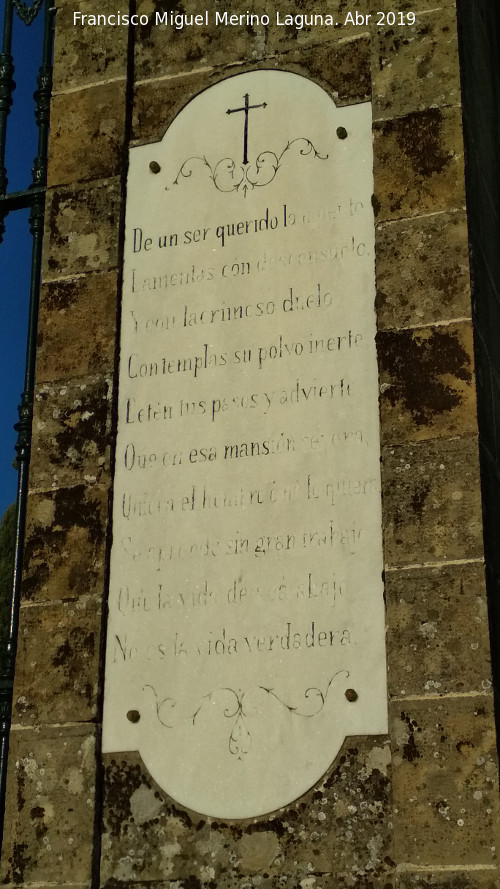 Francisco Miguel Merino Laguna. Abr 2019
De un ser querido la muerte
Lamentas con desconsuelo,
Y con lacrimoso duelo
Contemplas su polvo inerte
Detén tus pasos y advierte
Que en esa mansión
el hombre ó no lo quiera
Se aprende sin gran trabajo
Que la vida de acá abajo
No es la vida verdadera.